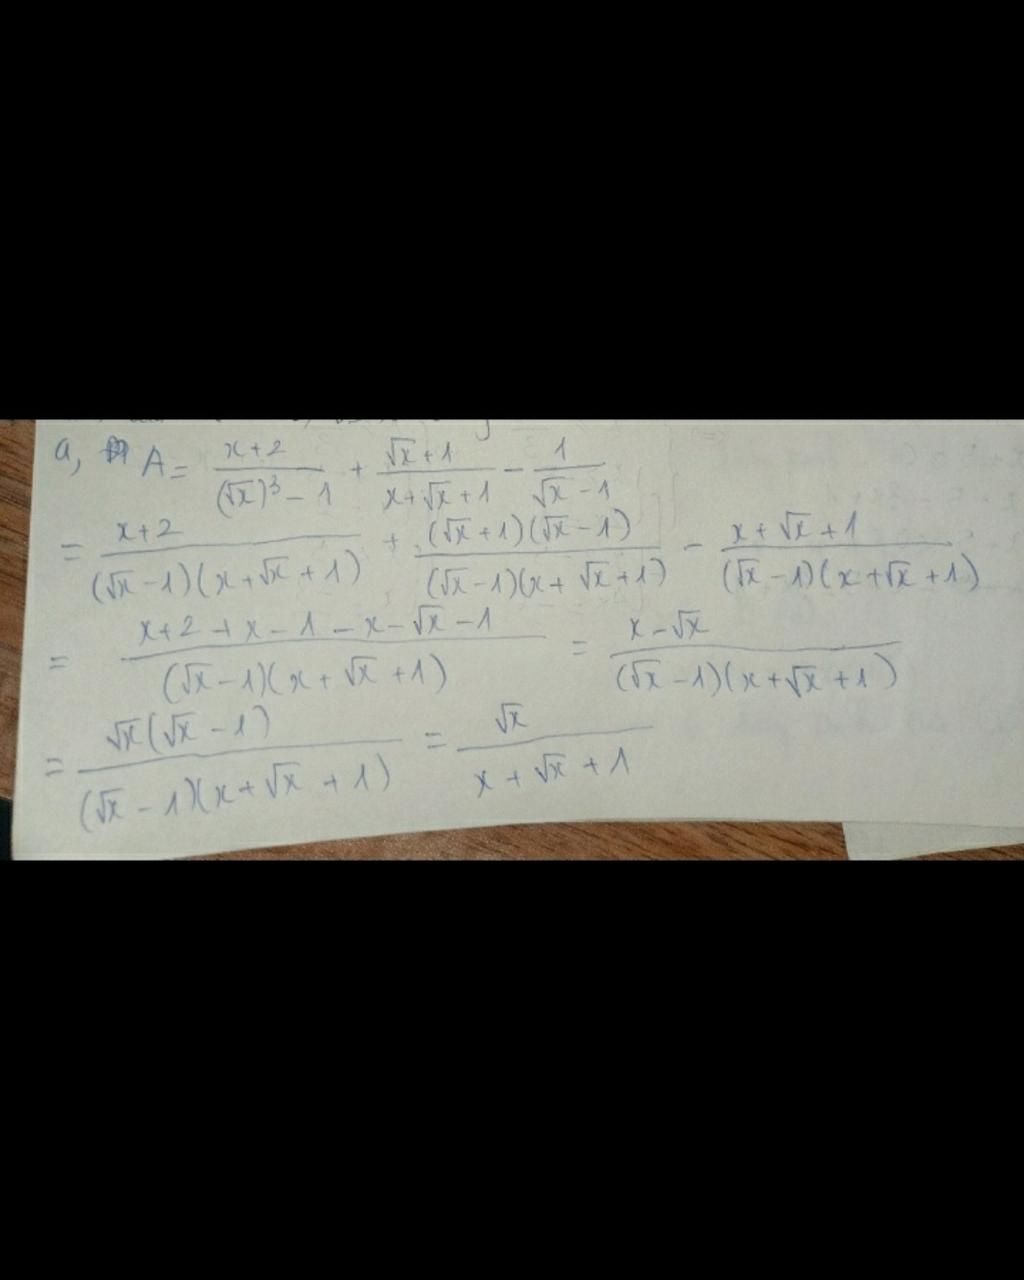 a, A = \frac{x+2}{(\sqrt{x})^3 - 1} + \frac{\sqrt{x}+1}{x+\sqrt{x}+1} - \frac{1}{\sqrt{x}-1}
= \frac{x+2}{(\sqrt{x}-1)(x+\sqrt{x}+1)} + \frac{(\sqrt{x}+1)(\sqrt{x}-1)}{(\sqrt{x}-1)(x+\sqrt{x}+1)} - \frac{x+\sqrt{x}+1}{(\sqrt{x}-1)(x+\sqrt{x}+1)}
= \frac{x+2+x-1-x-\sqrt{x}-1}{(\sqrt{x}-1)(x+\sqrt{x}+1)} = \frac{x-\sqrt{x}}{(\sqrt{x}-1)(x+\sqrt{x}+1)}
= \frac{\sqrt{x}(\sqrt{x}-1)}{(\sqrt{x}-1)(x+\sqrt{x}+1)} = \frac{\sqrt{x}}{x+\sqrt{x}+1}